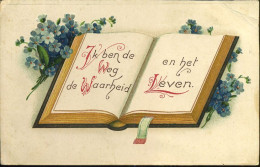 Ik ben de
Weg
de Waarheid
en het
Leven.